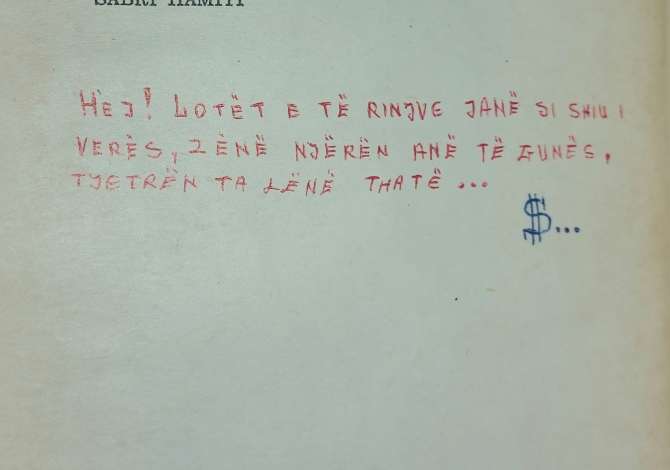 SABRI HAMITI
HEJ! LOTËT E TË RINJVE JANË SI SHIU I
VERËS, ZËNË NJËRËN ANË TË GUNËS,
TJETRËN TA LËNË THATË...
$...